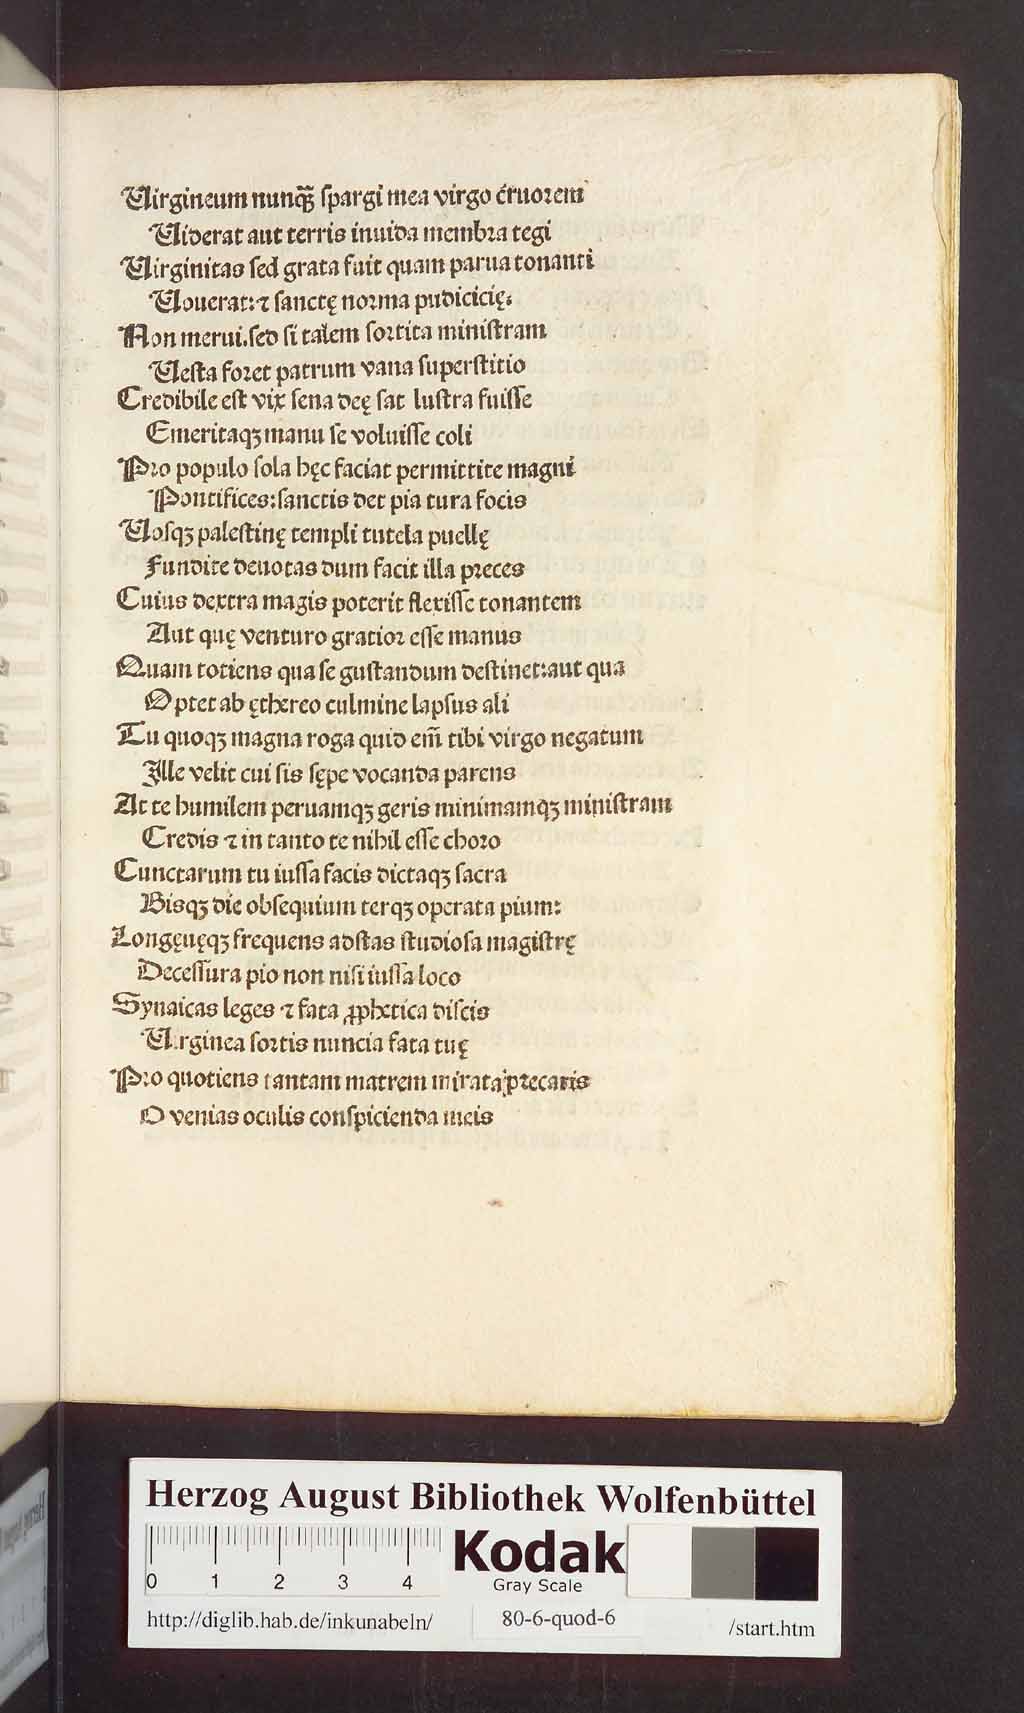 Uirgineum nunqꝫ̃ ſpargi mea virgo cruorem
Uiderat aut terris inuida membra tegi
Uirginitas ſed grata fuit quam parua tonanti
Uouerat: ⁊ ſanctę norma pudicicię.
Non merui. ſed ſi talem ſortita miniſtram
Ueſta foret patrum vana ſuperſtitio
Credibile eſt vix ſena deę ſat luſtra fuiſſe
Emeritaqꝫ manu ſe voluiſſe coli
Pro populo ſola hęc faciat permittite magni
Pontifices: ſanctis det pia tura focis
Uoſqꝫ paleſtinę templi tutela puellę
Fundite deuotas dum facit illa preces
Cuius dextra magis poterit flexiſſe tonantem
Aut quę venturo gratior eſſe manus
Quam totiens qua ſe guſtandum deſtinet: aut qua
Optet ab ęthereo culmine lapſus ali
Tu quoqꝫ magna roga quid em̃ tibi virgo negatum
Ille velit cui ſis ſępe vocanda parens
At te humilem peruamqꝫ geris minimamqꝫ miniſtram
Credis ⁊ in tanto te nihil eſſe choro
Cunctarum tu iuſſa facis dictaqꝫ ſacra
Bisqꝫ die obſequium terqꝫ operata pium:
Longęuęqꝫ frequens adſtas ſtudioſa magiſtrę
Deceſſura pio non niſi iuſſa loco
Synaicas leges ⁊ fata ꝓphetica diſcis
Uirginea ſortis nuncia fata tuę
Pro quotiens tantam matrem mirata precaris
O venias oculis conſpicienda meis
Herzog August Bibliothek Wolfenbüttel
0 1 2 3 4
Kodak
Gray Scale
http://diglib.hab.de/inkunabeln/
80-6-quod-6
/start.htm